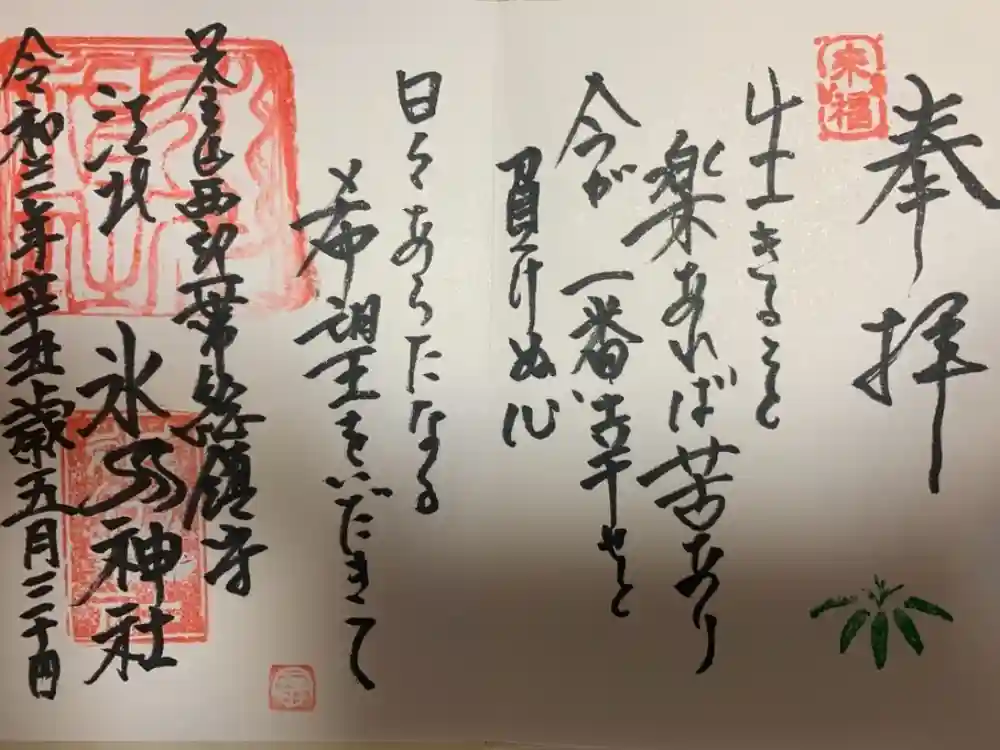 奉拝
来福
生きること
楽あれば苦あり
今が一番幸せと
負けぬ心
日々あらたなる
希望をいだきて
足立区西部一帯総鎮守
江北
氷川神社
令和三年辛丑歳五月二十